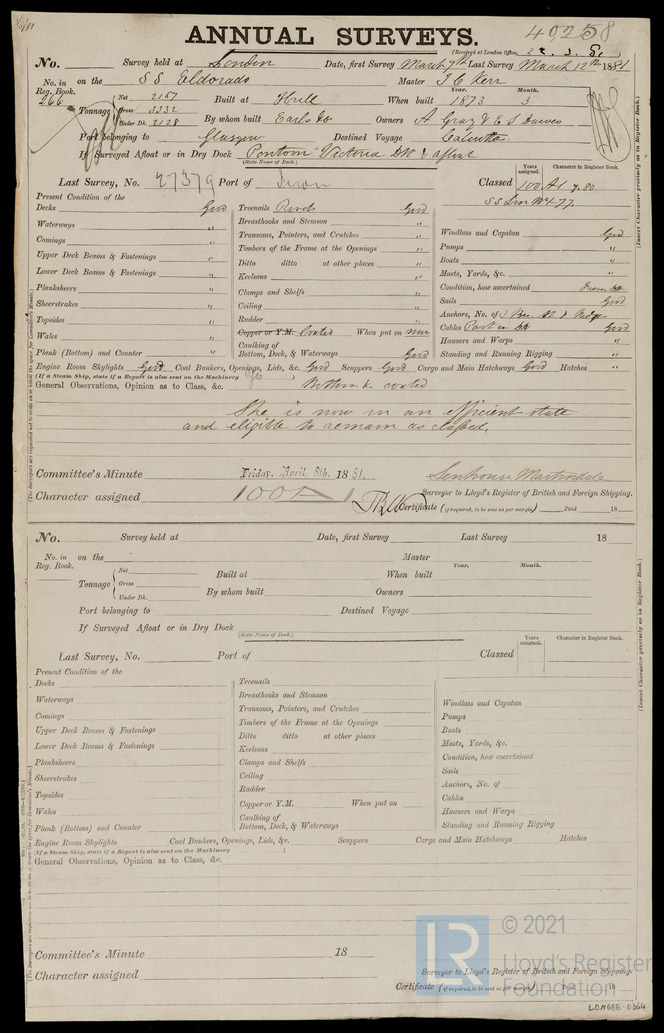 ANNUAL SURVEYS.
49258
(Received at London Office, 22. 3. 81)
No. Survey held at London Date, first Survey March 7th Last Survey March 12th 1881
No. in Reg. Book. 266 on the SS Eldorado Master J C Kerr
Tonnage Net 2157 Gross 3332 Under Dk. 2128 Built at Hull When built Year. 1873 Month. 3
By whom built Earls Co Owners A Gray & E S Dawes
Port belonging to Glasgow Destined Voyage Calcutta
If Surveyed Afloat or in Dry Dock Pontoon Victoria Dk & afloat
(State Name of Dock.)
Last Survey, No. 27379 Port of Iron Classed Years assigned. Character in Register Book.
100 A1 7.80
SS Lon No 1-77
Present Condition of the
Decks Good Treenails Rivets Good
Waterways " Breasthooks and Stemson " Windlass and Capstan Good
Comings " Transoms, Pointers, and Crutches " Pumps "
Upper Deck Beams & Fastenings " Timbers of the Frame at the Openings " Boats "
Lower Deck Beams & Fastenings " Ditto ditto at other places " Masts, Yards, &c. "
Planksheers " Keelsons " Condition, how ascertained From Dk
Sheerstrakes " Clamps and Shelfs " Sails Good
Topsides " Ceiling " Anchors, No. of 3
Wales " Rudder " Cables Good
Copper or Y.M. Coated When put on now
Plank (Bottom) and Counter " Caulking of Bottom, Deck, & Waterways Good Hawsers and Warps "
Standing and Running Rigging "
Engine Room Skylights Good Coal Bunkers, Openings, Lids, &c. Good Scuppers Good Cargo and Main Hatchways Good Hatches "
(If a Steam Ship, state if a Report is also sent on the Machinery Yes )
General Observations, Opinion as to Class, &c. coated
She is now in an efficient state
and eligible to remain as classed.
Committee's Minute Friday, April 8th, 1881.
Character assigned 100 A 1
Senhouse Martindale
Surveyor to Lloyd's Register of British and Foreign Shipping.
Certificate (if required, to be sent as per margin) Paid 18
(Insert Character precisely as in Register Book.)
No. Survey held at Date, first Survey Last Survey 18
No. in Reg. Book. on the Master
Tonnage Net Gross Under Dk. Built at When built Year. Month.
By whom built Owners
Port belonging to Destined Voyage
If Surveyed Afloat or in Dry Dock
(State Name of Dock.)
Last Survey, No. Port of Classed Years assigned. Character in Register Book.
Present Condition of the
Decks Treenails
Waterways Breasthooks and Stemson Windlass and Capstan
Comings Transoms, Pointers, and Crutches Pumps
Upper Deck Beams & Fastenings Timbers of the Frame at the Openings Boats
Lower Deck Beams & Fastenings Ditto ditto at other places Masts, Yards, &c.
Planksheers Keelsons Condition, how ascertained
Sheerstrakes Clamps and Shelfs Sails
Topsides Ceiling Anchors, No. of
Wales Rudder Cables
Copper or Y.M. When put on Hawsers and Warps
Plank (Bottom) and Counter Caulking of Bottom, Deck, & Waterways Standing and Running Rigging
Engine Room Skylights Coal Bunkers, Openings, Lids, &c. Scuppers Cargo and Main Hatchways Hatches
(If a Steam Ship, state if a Report is also sent on the Machinery )
General Observations, Opinion as to Class, &c.
Committee's Minute 18
Character assigned
Surveyor to Lloyd's Register of British and Foreign Shipping.
Certificate (if required, to be sent as per margin) Paid 18
(Insert Character precisely as in Register Book.)
© 2021
Lloyd's Register
Foundation
LDN668-0364